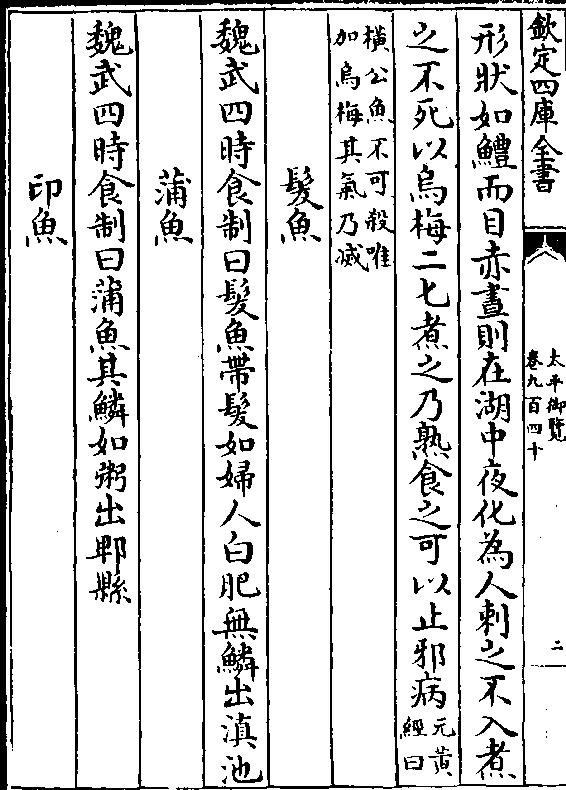 欽定四庫全書
太平御覽
卷九百四十
二
形狀如鱧而目赤晝則在湖中夜化為人刺之不入煮
之不死以烏梅二七煮之乃熟食之可以止邪病元黄
經曰
橫公魚不可殺唯
加烏梅其氣乃滅
髮魚
魏武四時食制曰髮魚帶髮如婦人白肥無鱗出滇池
蒲魚
魏武四時食制曰蒲魚其鱗如粥出郫縣
印魚